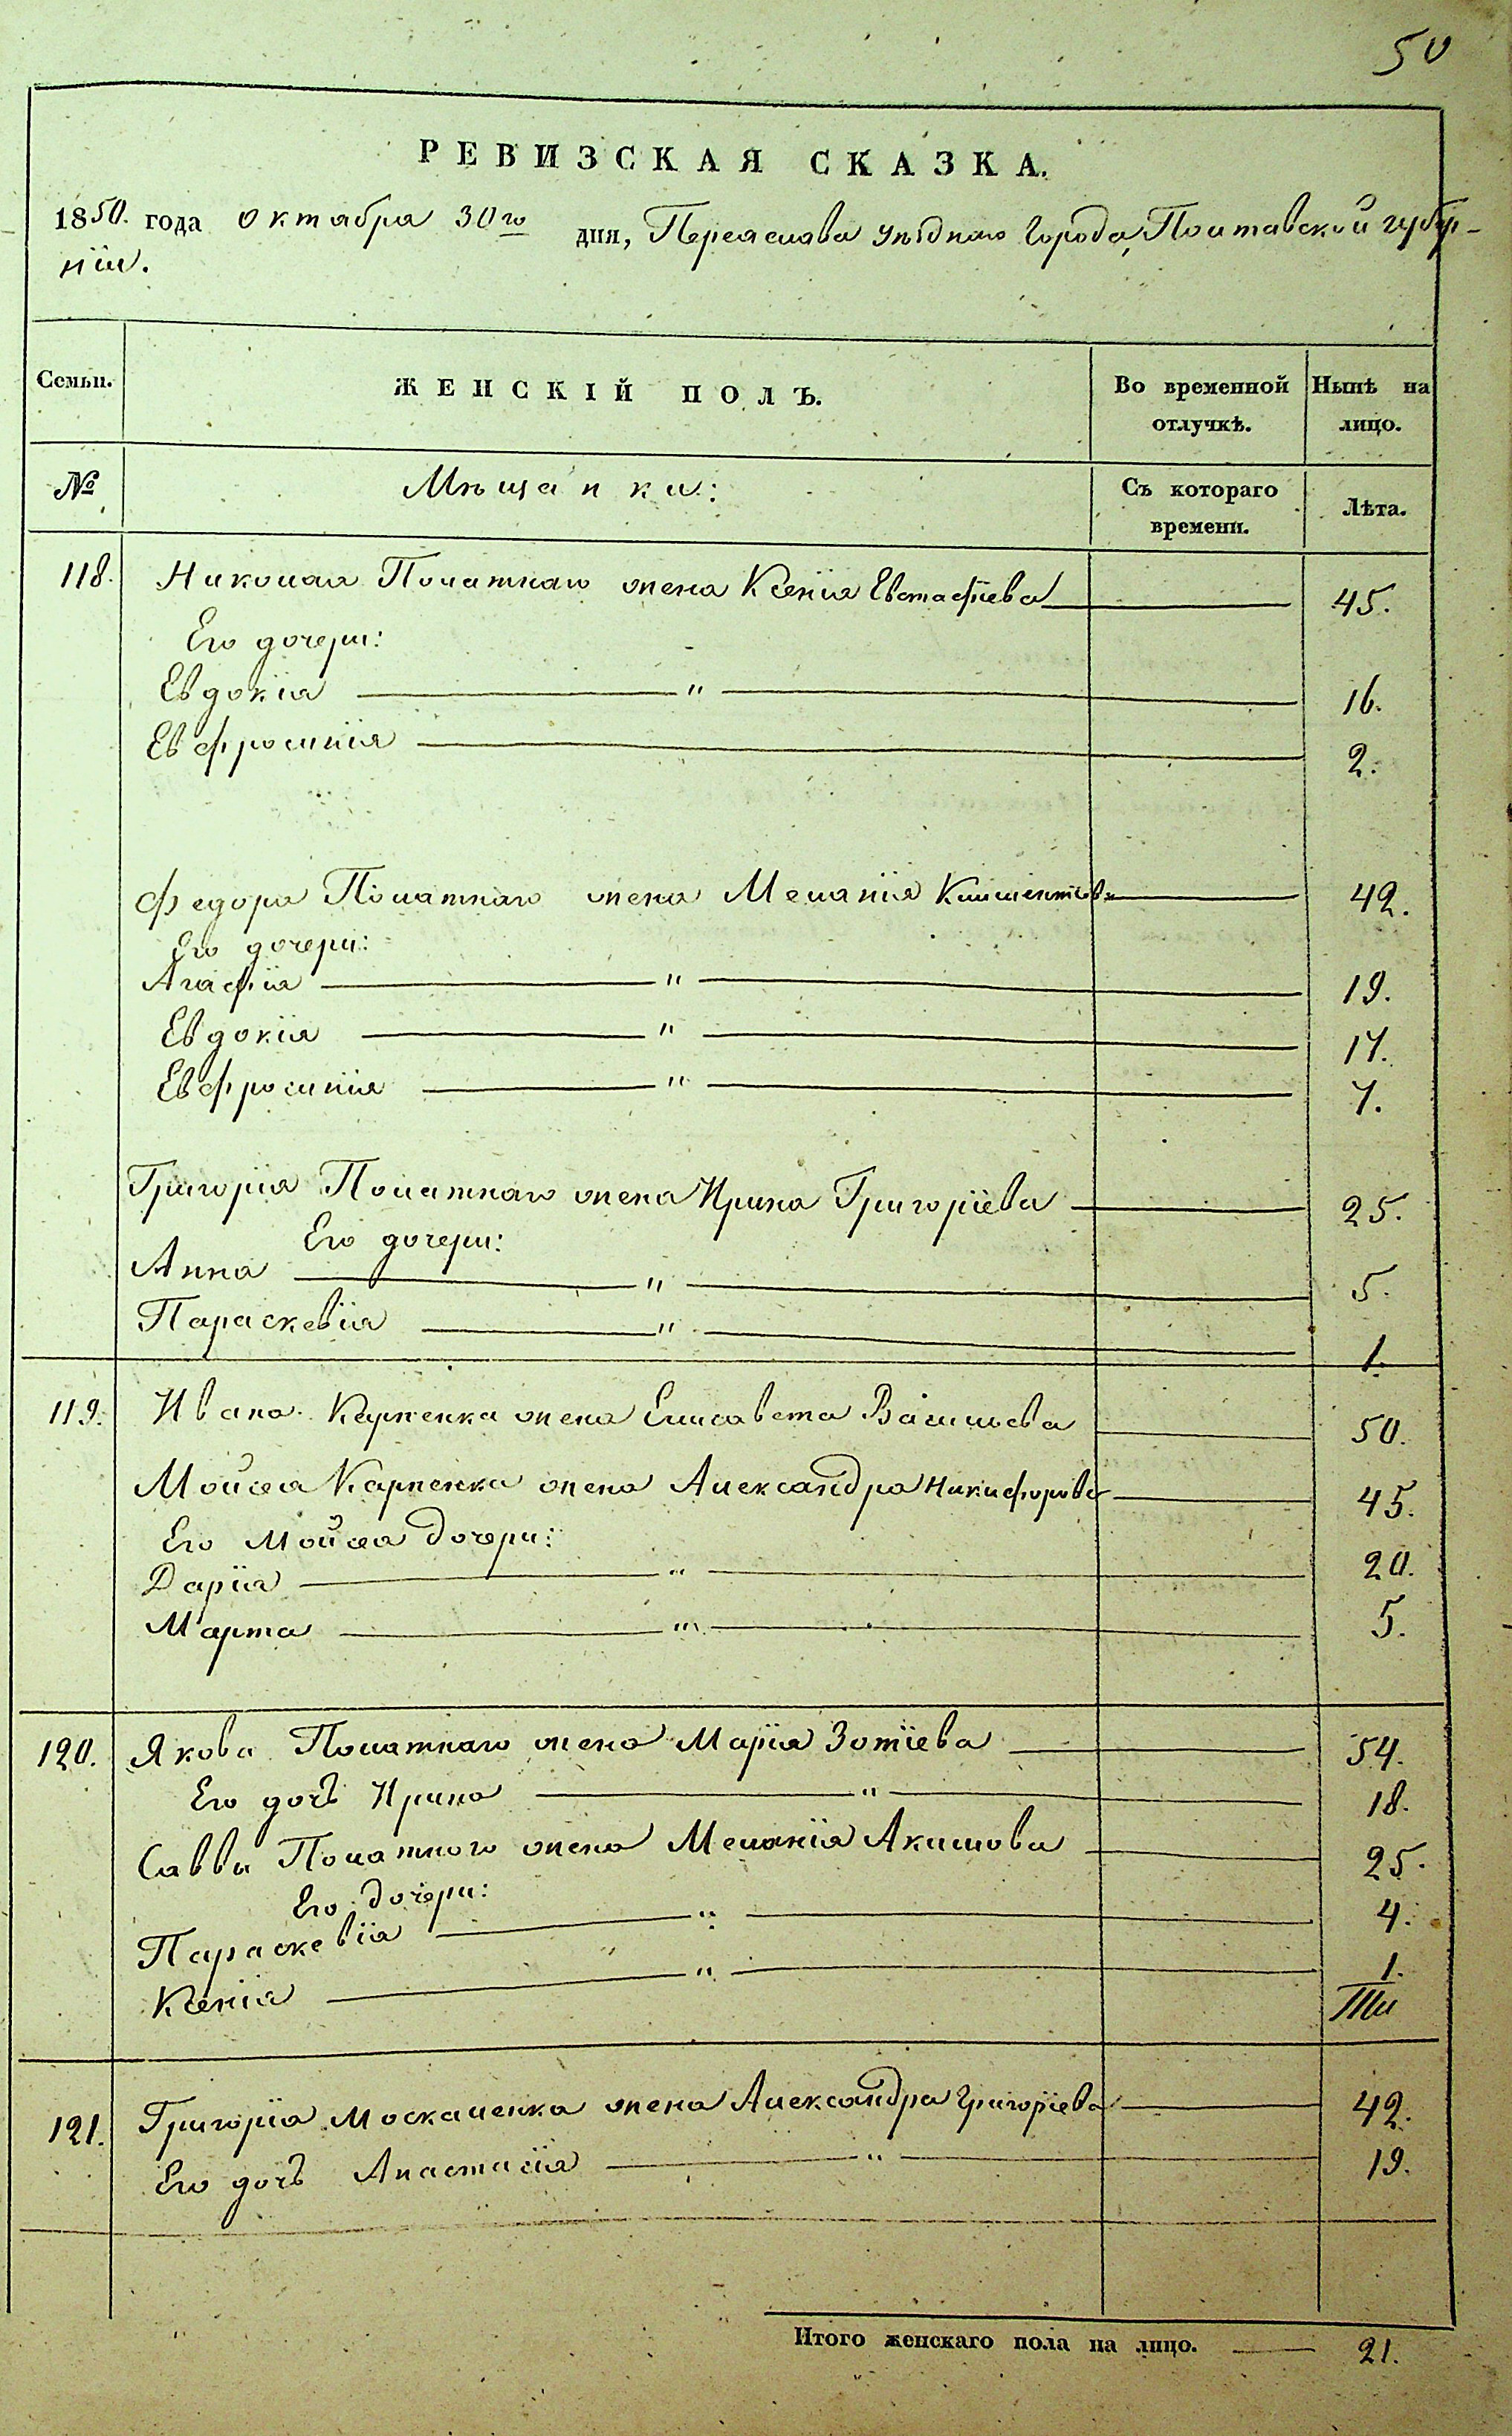 50
РЕВИЗСКАЯ СКАЗКА.
1850. года октября 30го дня, Переяслава уѣзднаго города, Полтавской губер-
ніи.
Семьи. ЖЕНСКІЙ ПОЛЪ. Во временной отлучкѣ. Нынѣ на лицо.
№ Мѣщанки: Съ котораго времени. Лѣта.
118. Николая Полатнаго жена Ксенія Евстафіева 45.
Его дочери:
Евдокія " 16.
Евфросинія 2.
Федора Полатнаго жена Меланія Климентіева 42.
Его дочери:
Агафія " 19.
Евдокія " 17.
Евфросинія " 7.
Григорія Полатнаго жена Ирина Григоріева 25.
Его дочери:
Анна " 5.
Параскевія " 1.
119. Ивана Карпенка жена Елисавета Васильева 50.
Мойсея Карпенка жена Александра Никифорова 45.
Его Мойсея дочери:
Дарія " 20.
Марта " 5.
120. Якова Полатнаго жена Марія Зотіева 54.
Его дочь Ирина " 18.
Саввы Полатнаго жена Меланія Акимова 25.
Его дочери:
Параскевія " 4.
Ксенія " 1.
121. Григорія Москаленка жена Александра Григоріева 42.
Его дочь Анастасія " 19.
Итого женскаго пола на лицо. 21.